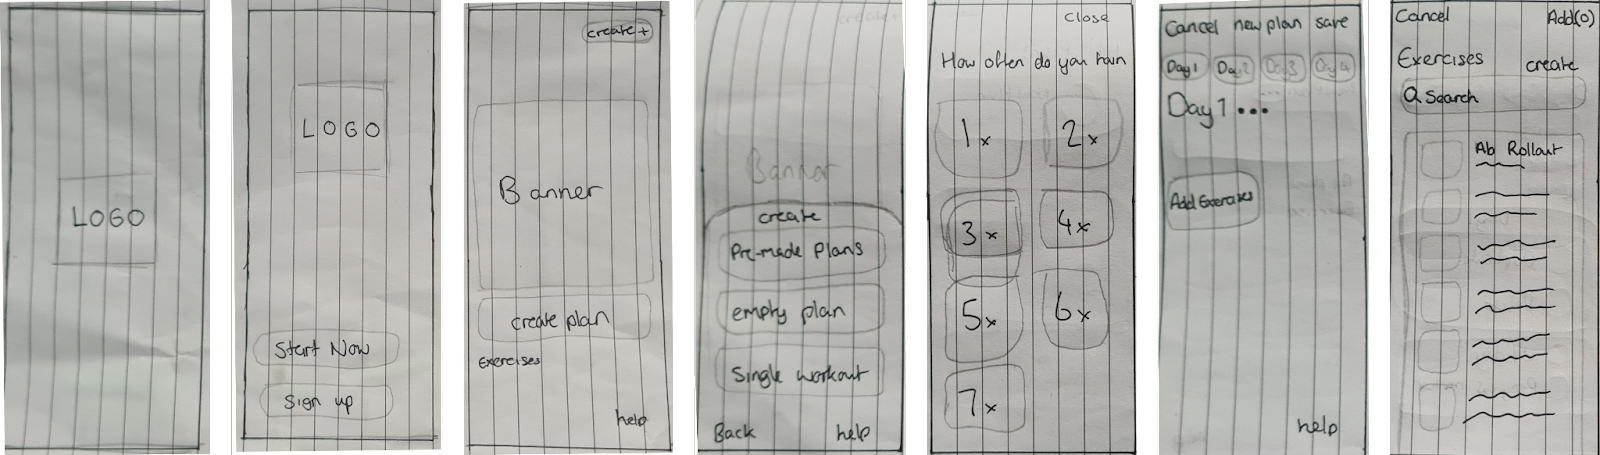 LOGO
LOGO
Start Now
Sign up
create +
Banner
create plan
Exercises
help
Banner
create
Pre-made Plans
empty plan
Single workout
Back help
Close
How often do you train
1x 2x
3x 4x
5x 6x
7x
Cancel new plan save
Day 1 Day 2 Day 3 Day 4
Day 1 ...
Add Exercises
help
Cancel Add(0)
Exercises create
Search
Ab Rollout